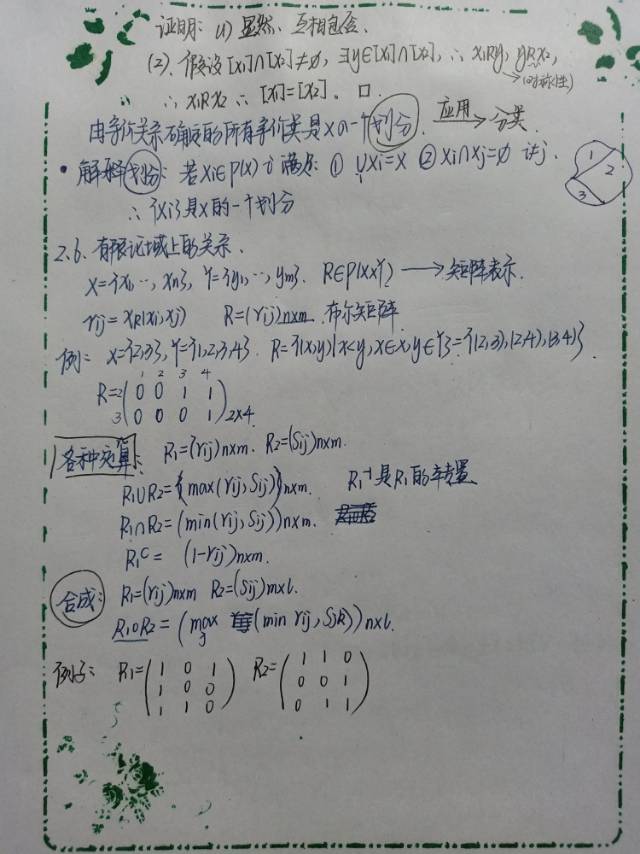 证明: (1) 显然、互相包含.
(2). 假设[x1]∩[x2]≠∅, ∃y∈[x1]∩[x2], ∴ x1Ry, yRx2,
→(对称性)
∴ x1Rx2 ∴ [x1]=[x2]. □.
由等价关系确定的所有等价类是X的一个划分. 应用→分类.
• 解释划分: 若Xi∈P(X) 满足: ① ∪Xi=X ② Xi∩Xj=∅ i≠j.
1 2
3
∴ {Xi}是X的一个划分
2.6. 有限论域上的关系.
X={x1,…, xn}, Y={y1,…, ym}. R∈P(X×Y) → 矩阵表示.
rij = XR(xi, xj) R=(rij)n×m 布尔矩阵
例: X={2,3}, Y={1,2,3,4}. R={(x,y)|x<y, x∈X, y∈Y}={(2,3),(2,4),(3,4)}.
1 2 3 4
R= 2 ( 0 0 1 1
3 0 0 0 1 ) 2×4.
各种运算: R1=(rij)n×m. R2=(Sij)n×m.
R1∪R2=(max(rij, Sij))n×m. R1⁻¹是R1的转置
R1∩R2=(min(rij, Sij))n×m.
R1ᶜ= (1-rij)n×m.
合成: R1=(rij)n×m R2=(Sij)m×l.
R1∘R2=(max j (min rij, Sjk))n×l.
例子: R1= ( 1 0 1 R2= ( 1 1 0
1 0 0 0 0 1
1 1 0 ) 0 1 1 )